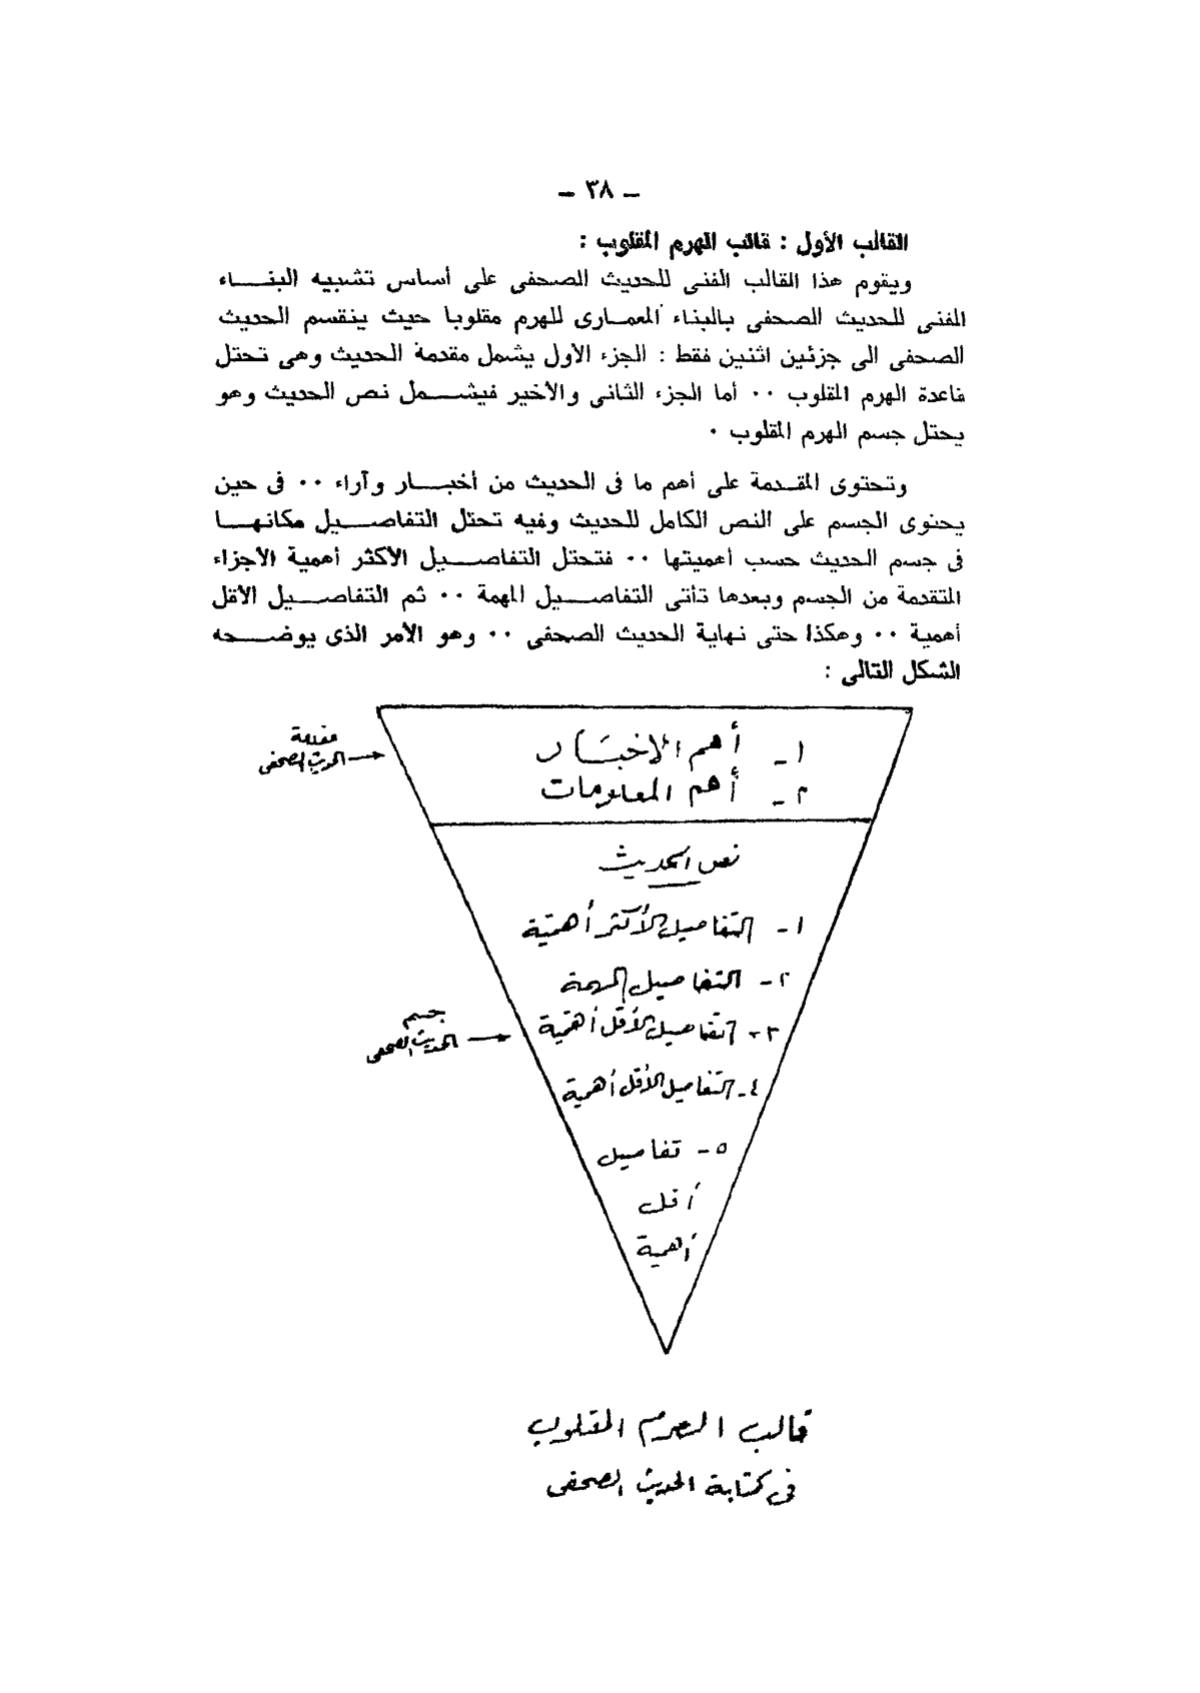 – ٣٨ –
القالب الأول : قالب الهرم المقلوب :
ويقوم هذا القالب الفنى للحديث الصحفى على أساس تشبيه البناء
الفنى للحديث الصحفى بالبناء المعمارى للهرم مقلوبا حيث ينقسم الحديث
الصحفى الى جزئين اثنين فقط : الجزء الأول يشمل مقدمة الحديث وهى تحتل
قاعدة الهرم المقلوب ٠٠ أما الجزء الثانى والأخير فيشمل نص الحديث وهو
يحتل جسم الهرم المقلوب ٠
وتحتوى المقدمة على أهم ما فى الحديث من أخبار وآراء ٠٠ فى حين
يحتوى الجسم على النص الكامل للحديث وفيه تحتل التفاصيل مكانها
فى جسم الحديث حسب أهميتها ٠٠ فتحتل التفاصيل الأكثر أهمية الأجزاء
المتقدمة من الجسم وبعدها تأتى التفاصيل المهمة ٠٠ ثم التفاصيل الأقل
أهمية ٠٠ وهكذا حتى نهاية الحديث الصحفى ٠٠ وهو الأمر الذى يوضحه
الشكل التالى :
١ - أهم الأخبار
٢ - أهم المعلومات
مقدمة
الحديث الصحفى
نص الحديث
١ - التفاصيل الأكثر أهمية
٢ - التفاصيل المهمة
٣ - التفاصيل الأقل أهمية
جسم
الحديث الصحفى
٤ - التفاصيل الأقل أهمية
٥ - تفاصيل
أقل
أهمية
قالب الهرم المقلوب
فى كتابة الحديث الصحفى